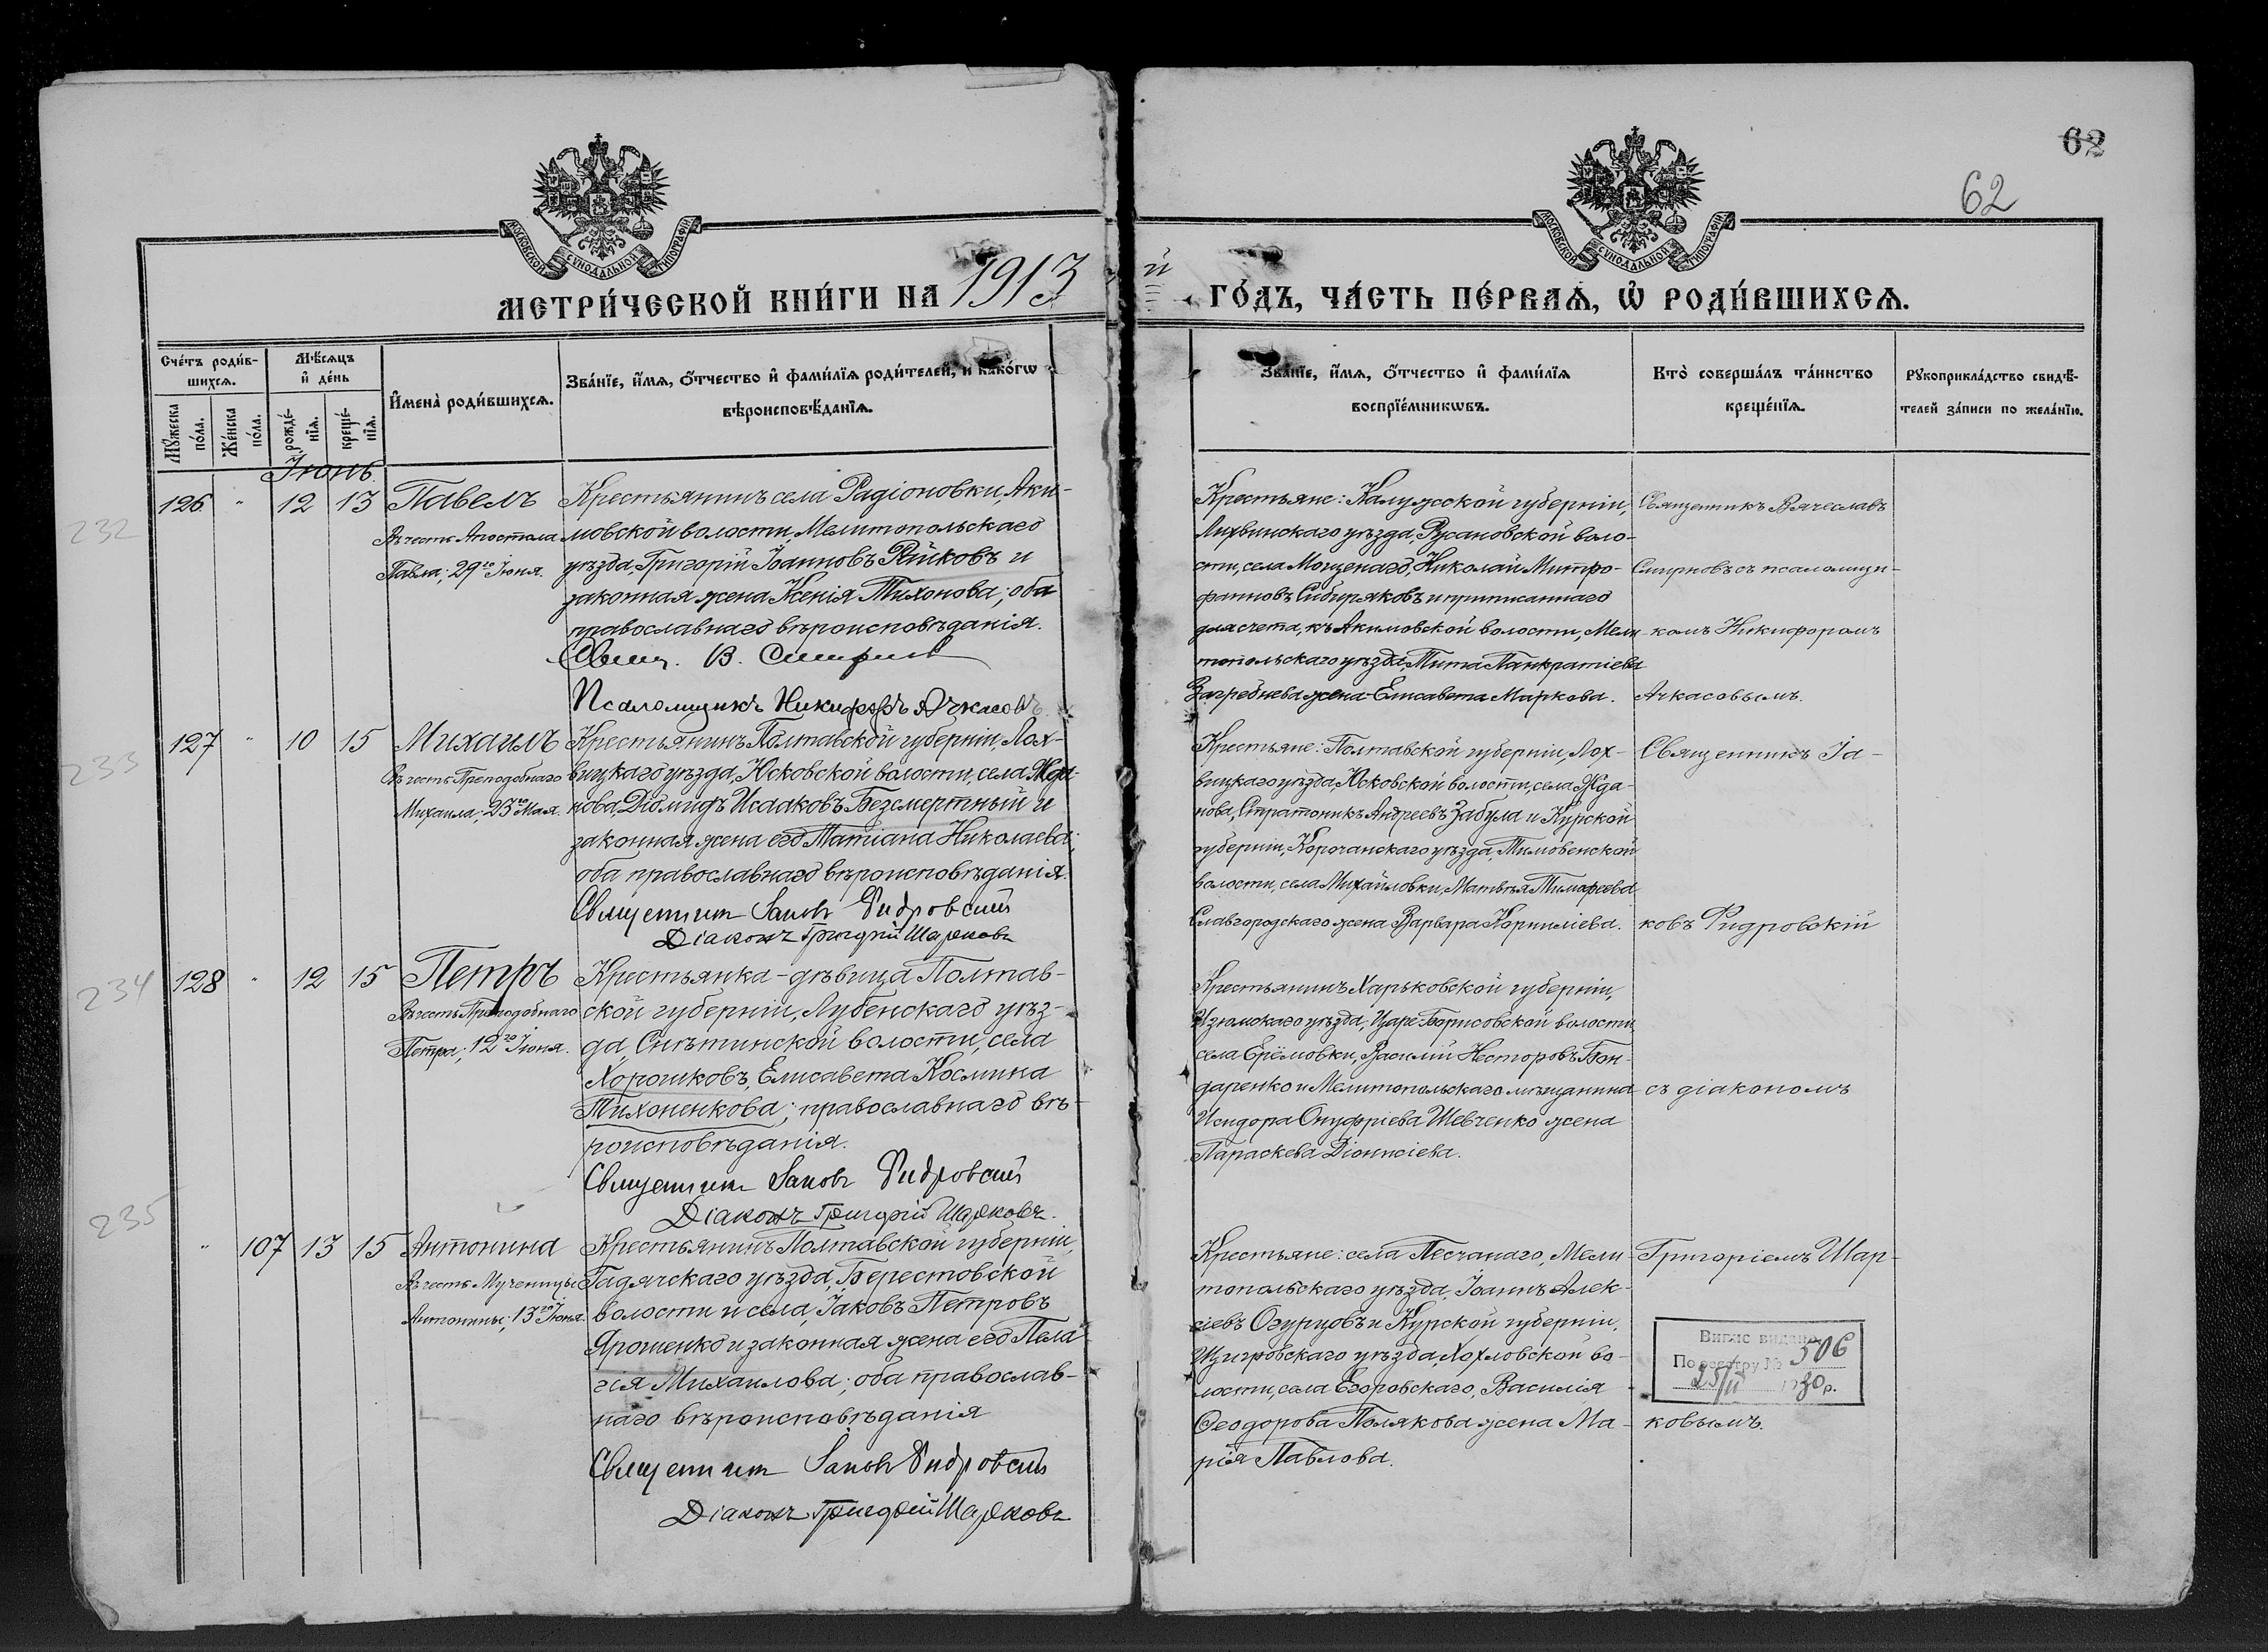 62
62
МОСКОВСКОЙ СѴНОДАЛЬНОЙ ТИПОГРАФІИ
МОСКОВСКОЙ СѴНОДАЛЬНОЙ ТИПОГРАФІИ
МЕТРИ́ЧЕСКОЙ КНИ́ГИ НА 1913
й ГО́ДЪ, ЧА́СТЬ ПЕ́РВАѦ, Ѡ҆ РОДИ́ВШИХСѦ.
Сче́тъ роди́в-
шихсѧ.
Мꙋ́жеска
по́ла.
Же́нска
по́ла.
Мѣ́сѧцъ
и҆ де́нь
рожде́-
нїѧ.
креще́-
нїѧ.
И҆мена̀ роди́вшихсѧ.
Зва́нїе, и҆́мѧ, ѻ҆́тчество и҆ фами́лїѧ роди́телей, и како́гѡ
вѣроисповѣ́данїѧ.
Зва́нїе, и҆́мѧ, ѻ҆́тчество и҆ фами́лїѧ
воспрїе́мникѡвъ.
Кто̀ соверша́лъ та́инство
креще́нїѧ.
Рꙋкоприкла́дство свидѣ́-
телей за́писи по жела́нїю.
Іюнь.
232
126 " 12 13 Павелъ
Въ честь Апостола
Павла; 29го Іюня.
Крестьянинъ села Радіоновки, Аки-
мовской волости, Мелитопольскаго
уѣзда, Григорій Іоанновъ Рѣйковъ и
законная жена Ксенія Тихонова; оба
православнаго вѣроисповѣданія.
Свящ. В. Смирновъ
Псаломщикъ Никифоръ Ачкасовъ.
Крестьяне: Калужской губерніи,
Лихвинскаго уѣзда, Русановской воло-
сти, села Мощенаго, Николай Митро-
фановъ Сибиряковъ и приписаннаго
для счета, къ Акимовской волости, Мели-
топольскаго уѣзда, Тита Панкратіева
Загребнева жена Елисавета Маркова.
Священникъ Вячеславъ
Смирновъ съ псаломщи-
комъ Никифоромъ
Ачкасовымъ.
233
127 " 10 15 Михаилъ
Въ честь Преподобнаго
Михаила; 23го Мая.
Крестьянинъ Полтавской губерніи, Лох-
вицкаго уѣзда, Юсковской волости, села Жда-
нова, Діомидъ Исааковъ Безсмертный и
законная жена его Татіана Николаева;
оба православнаго вѣроисповѣданія.
Священникъ Іаковъ Гидровскій
Діаконъ Григорій Шарковъ
Крестьяне: Полтавской губерніи, Лох-
вицкаго уѣзда, Юсковской волости, села Жда-
нова, Стратоникъ Андреевъ Забула и Курской
губерніи, Корочанскаго уѣзда, Тимовенской
волости, села Михайловки, Матвѣя Тимофеева
Славгородскаго жена Варвара Корниліева.
Священникъ Іа-
ковъ Гидровскій
234
128 " 12 15 Петръ
Въ честь Преподобнаго
Петра; 12го Іюня.
Крестьянка-дѣвица Полтав-
ской губерніи, Лубенскаго уѣз-
да, Снѣтинской волости, села
Хорошковъ, Елисавета Космина
Тихоненкова; православнаго вѣ-
роисповѣданія.
Священникъ Іаковъ Гидровскій
Діаконъ Григорій Шарковъ.
Крестьянинъ Харьковской губерніи,
Изюмскаго уѣзда, Царе-Борисовской волости,
села Ерёмовки, Василій Несторовъ Бон-
даренко и Мелитопольскаго мѣщанина
Исидора Онуфріева Шевченко жена
Параскева Діонисіева.
съ діакономъ
235
" 107 13 15 Антонина
Въ честь Мученицы
Антонины; 13го Іюня.
Крестьянинъ Полтавской губерніи,
Гадячскаго уѣзда, Берестовской
волости и села, Іаковъ Петровъ
Ярошенко и законная жена его Пела-
гія Михаилова; оба православ-
наго вѣроисповѣданія
Священникъ Іаковъ Гидровскій
Діаконъ Григорій Шарковъ
Крестьяне: села Песчанаго, Мели-
топольскаго уѣзда, Іоаннъ Алек-
сіевъ Огурцовъ и Курской губерніи,
Щигровскаго уѣзда, Хохловской во-
лости, села Егоровскаго, Василія
Ѳеодорова Полякова жена Ма-
рія Павлова.
Григоріемъ Шар-
ковымъ.
Випис видано
По реєстру № 506
25/II 1930 р.